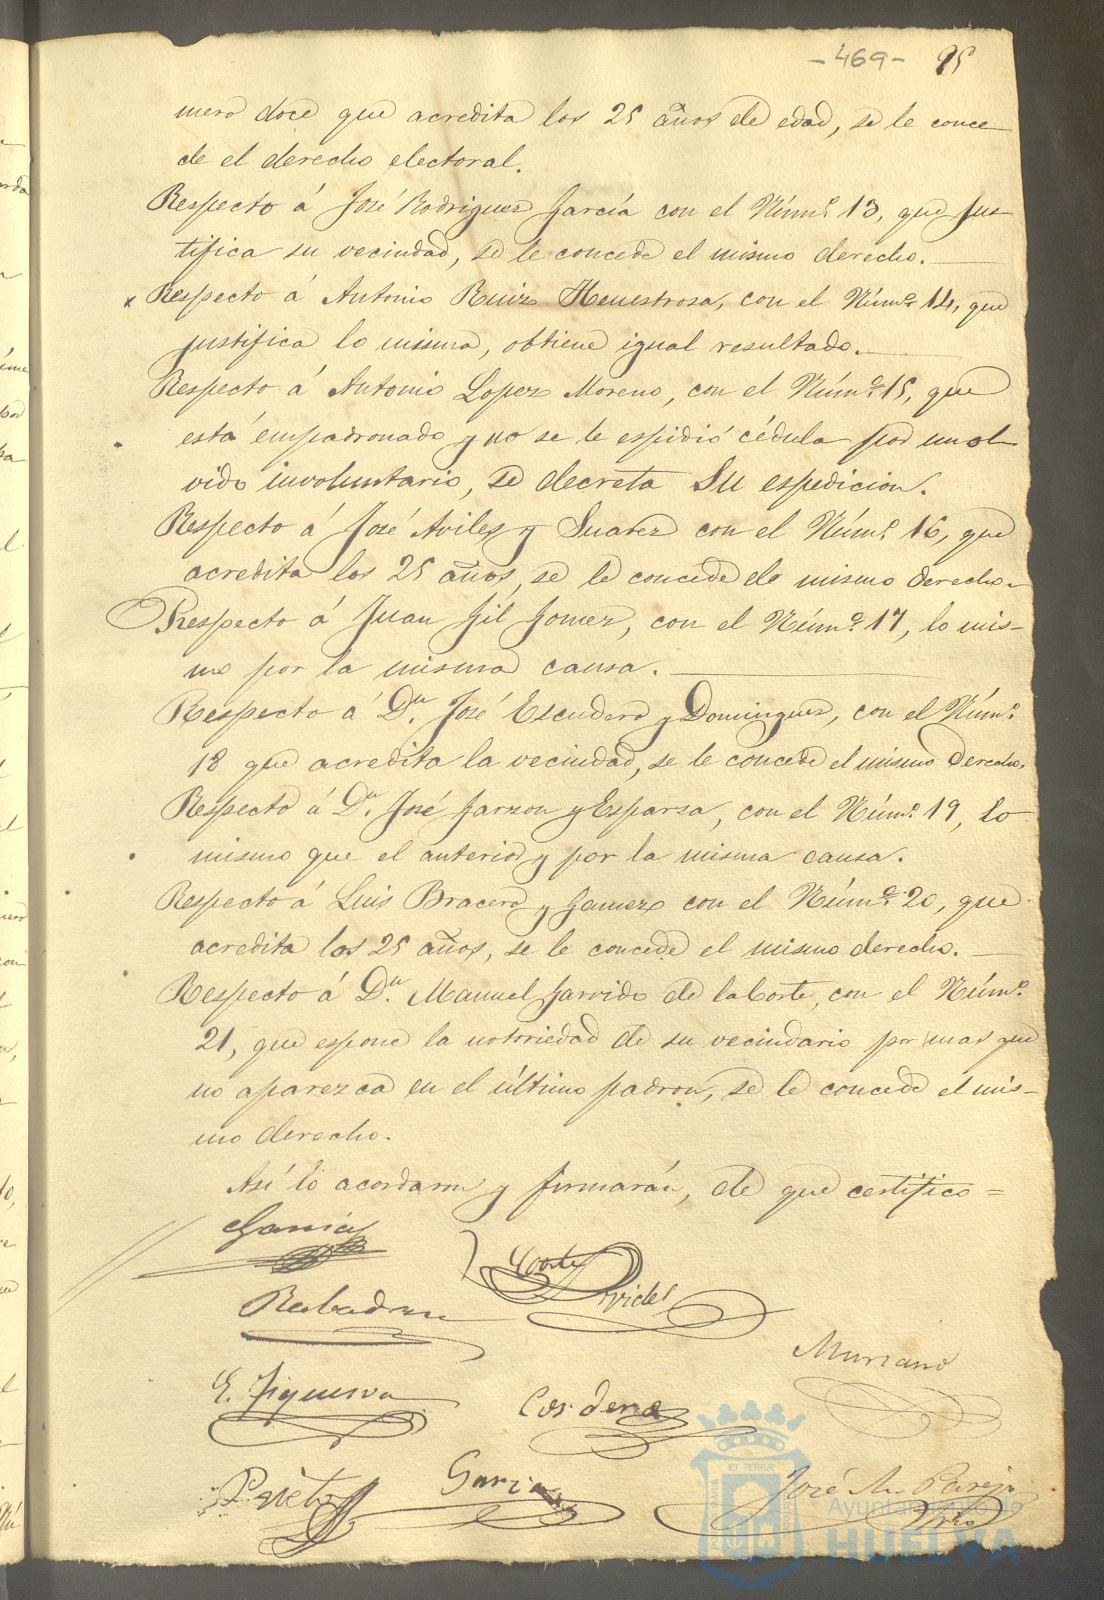 - 469 - 95
mero doce que acredita los 25 años de edad, se le conce
de el derecho electoral.
Respecto á José Rodriguez García con el Núm.º 13, que jus
tifica su vecindad, se le concede el mismo derecho.
x Respecto á Antonio Ruiz Henestrosa, con el Núm.º 14, que
justifica lo mismo, obtiene igual resultado.
Respecto á Antonio Lopez Moreno, con el Núm.º 15, que
está empadronado y no se le espidió cédula por un ol
vido involuntario, se decreta su espedicion.
Respecto á José Aviles y Suarez con el Núm.º 16, que
acredita los 25 años, se le concede el mismo derecho.
Respecto á Juan Gil Gomez, con el Núm.º 17, lo mis-
mo por la misma causa.
Respecto á Dn. José Escudero y Dominguez, con el Núm.º
18 que acredita la vecindad, se le concede el mismo derecho.
Respecto á Dn. José Garzon y Esparza, con el Núm.º 19, lo
mismo que el anterior y por la misma causa.
Respecto á Luis Bracero y Gomez con el Núm.º 20, que
acredita los 25 años, se le concede el mismo derecho.
Respecto á Dn. Manuel Garrido de la Corte, con el Núm.º
21, que espone la notoriedad de su vecindario por mas que
no aparezca en el último padron, se le concede el mis-
mo derecho.
Así lo acordaron y firmarán, de que certifico =
Garcia
Corte
Rebadan
Murciano
E. Figueroa
Cordero
Prieto
Garcia
José M. Parejo
Ayuntamiento de
HUELVA